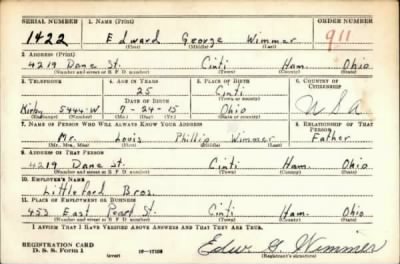 SERIAL NUMBER 1. NAME (Print) ORDER NUMBER
1422 Edward George Wimmer 911
(First) (Middle) (Last)
2. ADDRESS (Print)
4219 Dane St. Cinti Ham. Ohio
(Number and street or R. F. D. number) (Town) (County) (State)
3. TELEPHONE 4. AGE IN YEARS 5. PLACE OF BIRTH 6. COUNTRY OF CITIZENSHIP
25 Cinti
DATE OF BIRTH (Town or county)
Kirby 5444-W 7-24-15 Ohio USA
(Exchange) (Number) (Mo.) (Day) (Yr.) (State or country)
7. NAME OF PERSON WHO WILL ALWAYS KNOW YOUR ADDRESS 8. RELATIONSHIP OF THAT PERSON
Mr. Louis Phillip Wimmer Father
(Mr., Mrs., Miss) (First) (Middle) (Last)
9. ADDRESS OF THAT PERSON
4219 Dane St. Cinti Ham. Ohio
(Number and street or R. F. D. number) (Town) (County) (State)
10. EMPLOYER'S NAME
Littleford Bros.
11. PLACE OF EMPLOYMENT OR BUSINESS
453 East Pearl St. Cinti Ham. Ohio
(Number and street or R. F. D. number) (Town) (County) (State)
I AFFIRM THAT I HAVE VERIFIED ABOVE ANSWERS AND THAT THEY ARE TRUE.
REGISTRATION CARD
D. S. S. Form 1 (over) Edw. G. Wimmer
(Registrant's signature)